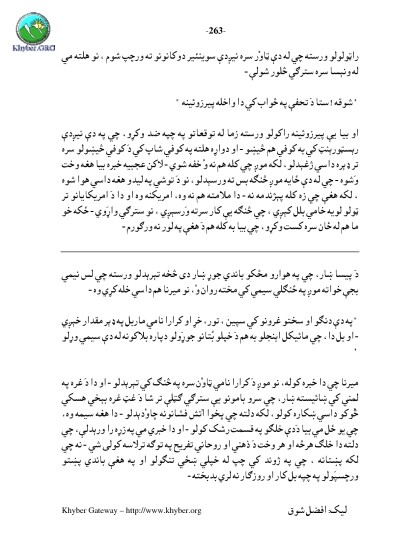 Khyber.ORG
-263-
راټولولو ورسته چي له دې ټاوْر سره نيږدې سوينئير دوکانونو ته ورچپ شوم ، نو هلته مي
له ونيسا سره سترګي څلور شولې-
"شوقه! ستا دَ تحفې په ځواب کي دا واخله پيرزوئينه "
او بيا يې پيرزوئينه راکولو ورسته زما له توقعاتو په چپه ضد وکړو، چي په دې نيږدې
ريسټورېنټ کي به کوفي هم څيښو - او دواړه هلته په کوفي شاپ کي دَ کوفي څيښولو سره
تر ډېره داسي ژغېدلو، لکه موږ چي کله هم نه وُ خفه شوي - لاکن عجيبه خبره بيا هغه وخت
وَشوه - چي له دې ځايه موږ څنګه بس ته ورسېدلو، نو دَ توشي په ليدو هغه داسي هوا شوه
، لکه هغې چي زه کله پېژندمه نه - دا ملامته هم نه وه، امريکنه وه او دا دَ امريکايانو تر
ټولو لويه خامي بلل کيږي ، چي څنګه يې کار سرته وَرسېږي ، نو سترګي واړوي - ځکه خو
ما هم له ځان سره کسټ وکړو، چي بيا به کله هم دَ هغې په لور نه ورګورم-
دَ پيسا ښار، چي په هوارو مځکو باندي جوړ ښار دی څخه تېرېدلو ورسته چي لس نيمي
بجې خواته موږ په ځنګلي سيمي کي مخته روان وُ، نو ميرنا هم داسي خله کړي وه-
"په دې دنګو او سختو غرونو کي سپين ، تور، خړ او کرارا نامي ماربل په ډېر مقدار خېږي
- او بل دا ، چي مائيکل اينجلو به هم دَ خپلو بُتانو جوړولو دپاره بلاکونه له دې سيمي وړلو
"
ميرنا چي دا خبره کوله، نو موږ دَ کرارا نامي ټاوْن سره په څنګ کي تېرېدلو - او دا دَ غره په
لمنې کي ښائيسته ښار، چي سرو بامونو يې سترګي ګټلې تر شا دَ غټ غره بيخي هسکي
څوکو داسي ښکاره کولو، لکه دلته چي پخوا آتش فشانونه چاوْدېدلو - او دا هغه سيمه وه،
چي يو ځل مي بيا دَدې خلګو په قسمت رشک کولو - او دا خبري مي په زړه را ورېدلې، چي
دلته دا خلګ هرڅه او هر وخت دَ ذهني او روحاني تفريح په توګه ترلاسه کولی شي - نه چي
لکه پښتانه ، چي په ژوند کي چپ له خپلي ښځي تنګولو او په هغې باندي پښتو
ورچسپولو په چپه بل کار او روزګار نه لري بدبخته-
Khyber Gateway – http://www.khyber.org
ليک: افضل شوق